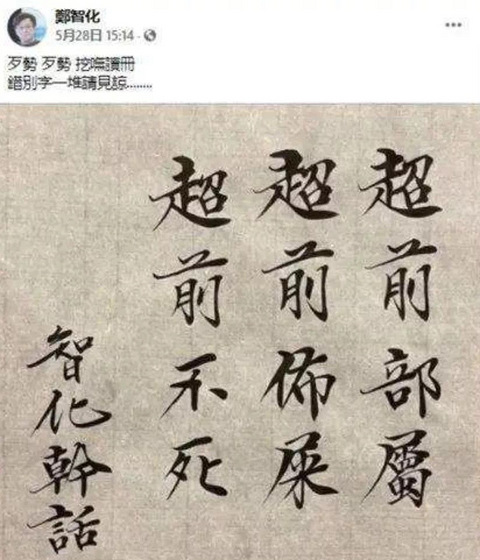 鄭智化
5月28日 15:14
歹勢 歹勢 挖嘸讀冊
錯別字一堆請見諒........
超前部屬
超前佈屎
超前不死
智化幹話